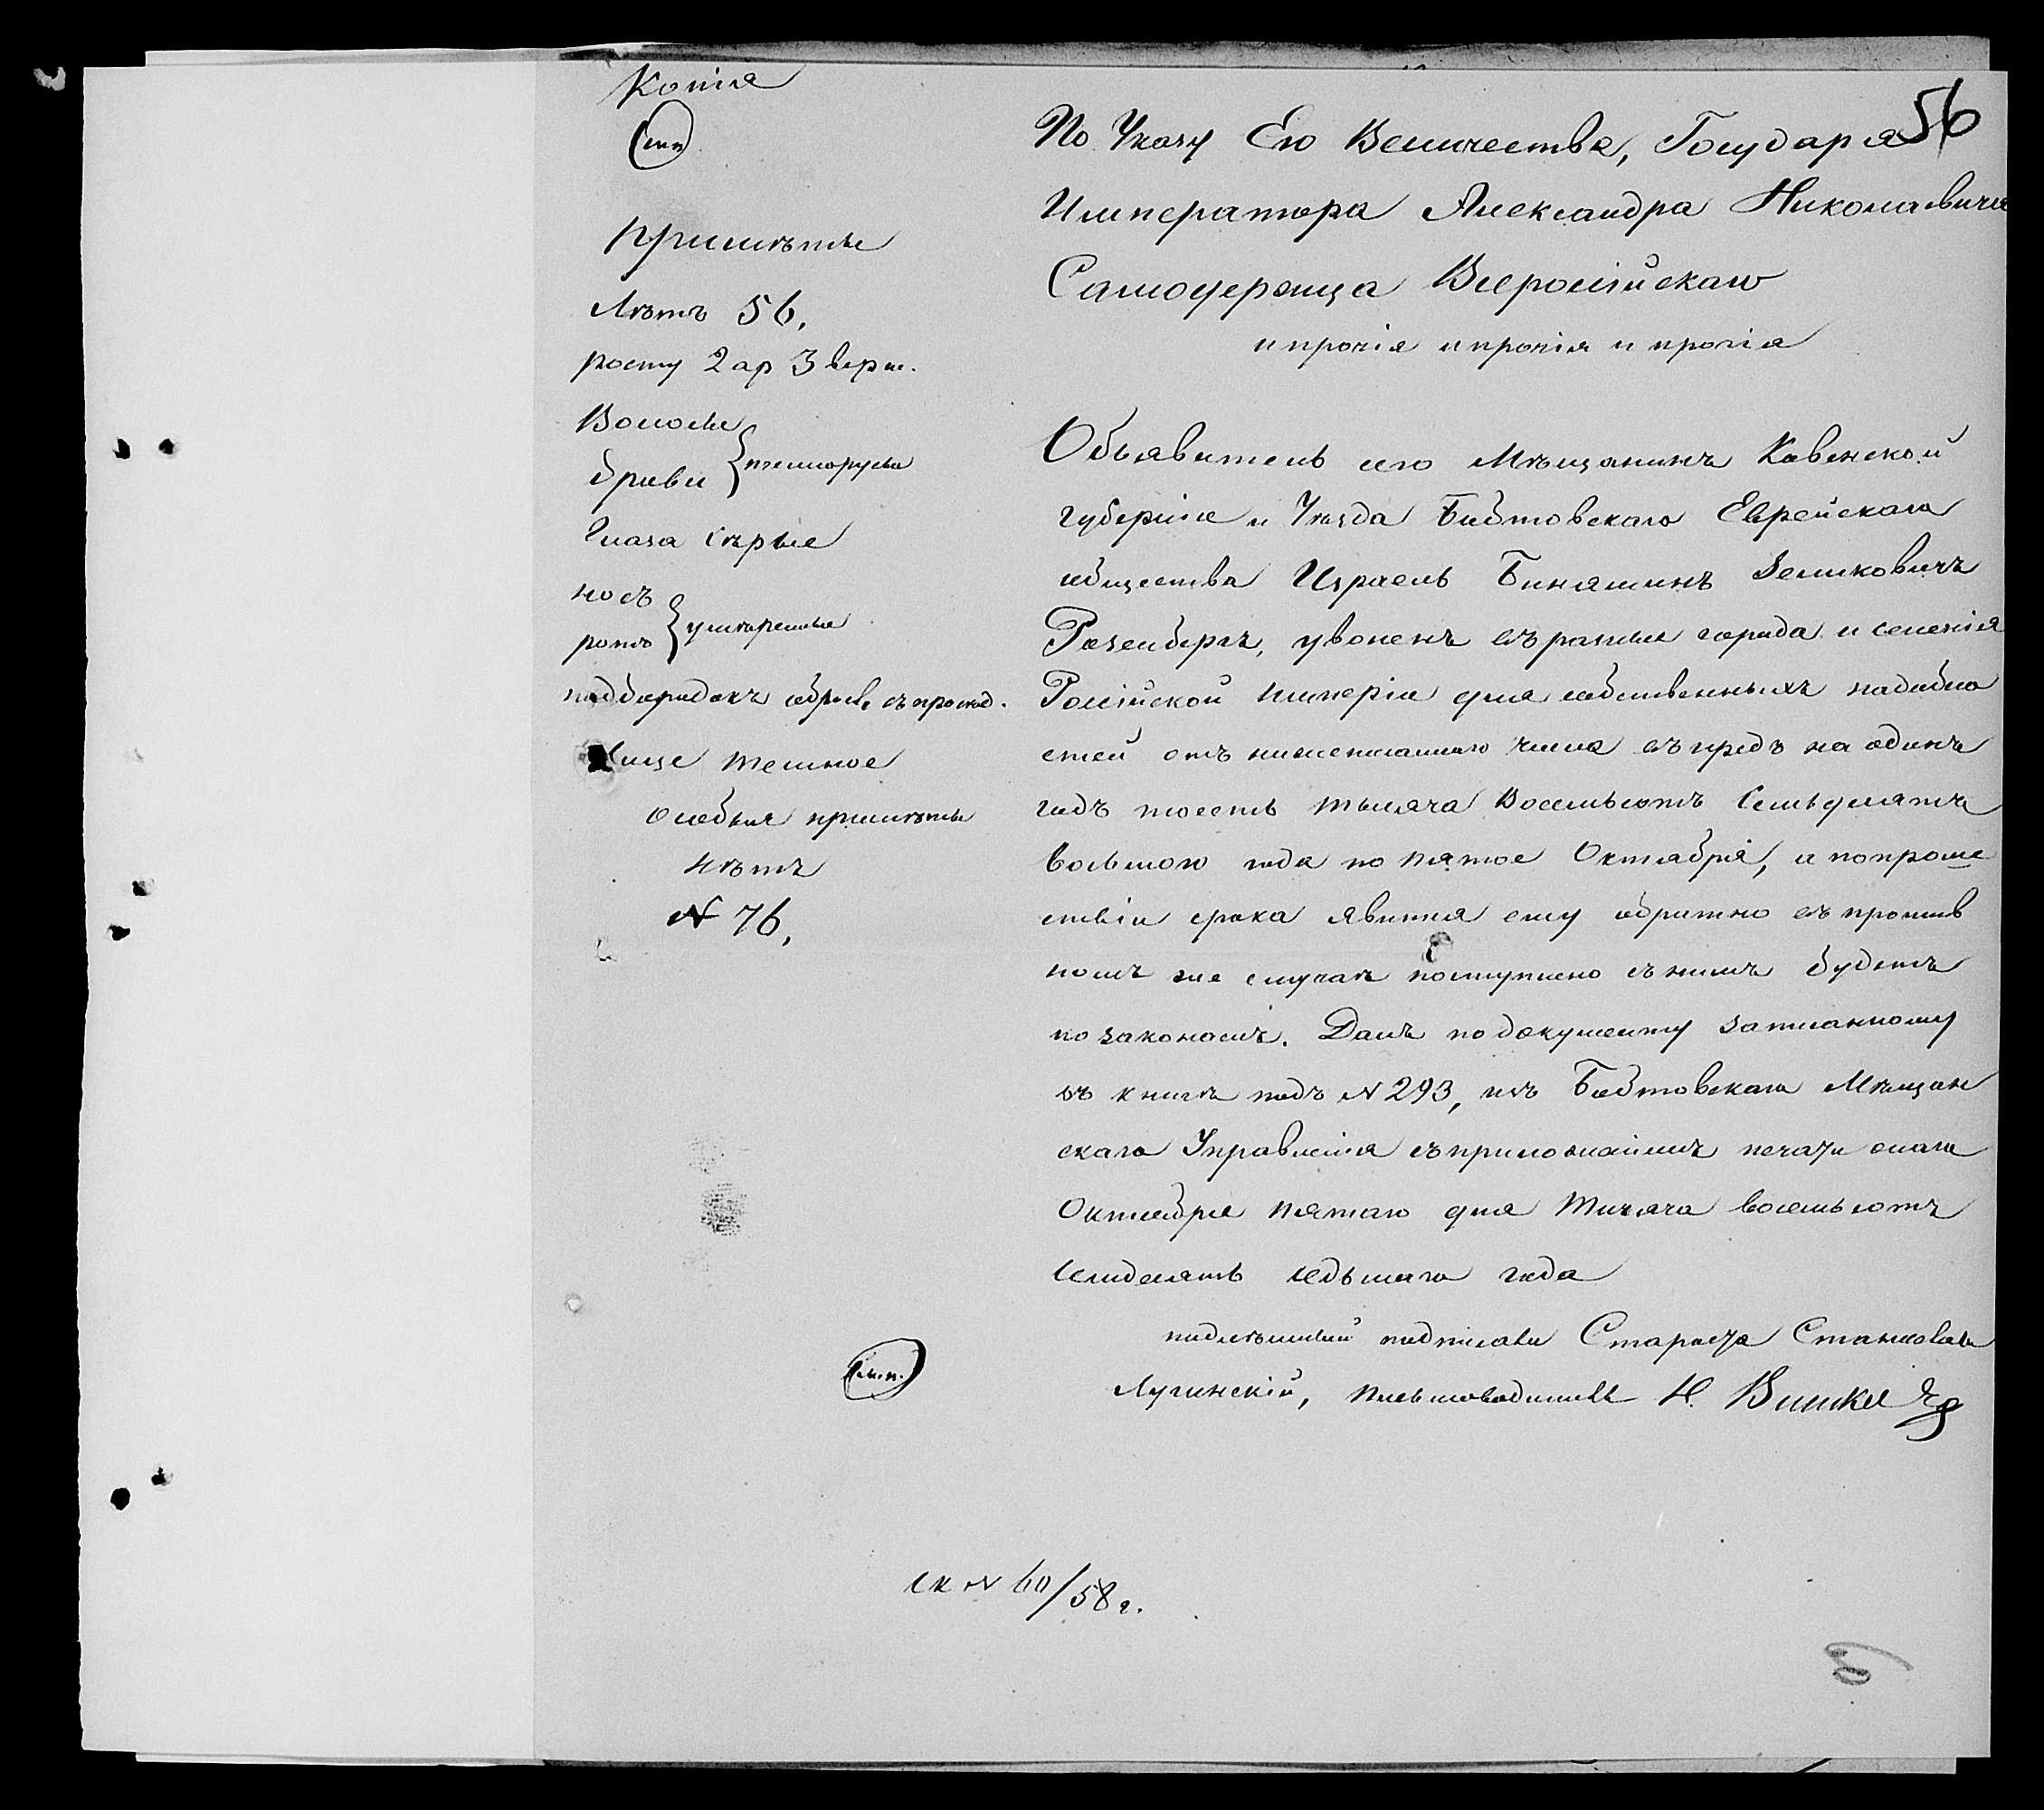 Копія
56
По Указу Его Величества, Государя
Императора Александра Николаевича
Самодержца Всеросійскаго
и прочія и прочія и прочія
Объявитель сего Мѣщанинъ Ковенской
губерніи и Уѣзда Бобтовскаго Еврейскаго
общества Израель Биняминъ Зеликовичъ
Розенбергъ, уволенъ въ разные города и селенія
Російской Имперіи для собственныхъ надобно
стей отъ нижеписаннаго числа въ предъ на одинъ
годъ тоесть тысяча Восемьсотъ Семьдесятъ
восьмого года по пятое Октября, и по проше
ствіи срока явится ему обратно въ против
номъ же случаѣ поступлено съ нимъ будетъ
по законамъ. Данъ по документу записанному
въ книгѣ подъ N 293, изъ Бобтовскаго Мѣщан
скаго Управленія съ приложеніемъ печати онаго
Октября пятаго дня Тисяча восемьсотъ
семдесятъ седьмаго года
подлѣнный подписали Староста Станиславъ
Лугинскій, Письмоводитель Н.
Примѣты
Лѣтъ 56,
росту 2 ар 3 верш.
Волосы
брови } темнорусы
Глаза сѣрые
носъ
ротъ } умѣренные
подбородокъ обросъ, съ просѣд.
Лице темное
Особыя примѣты
нѣтъ
N 76,
(м.п.)
ск N 60/58 г.